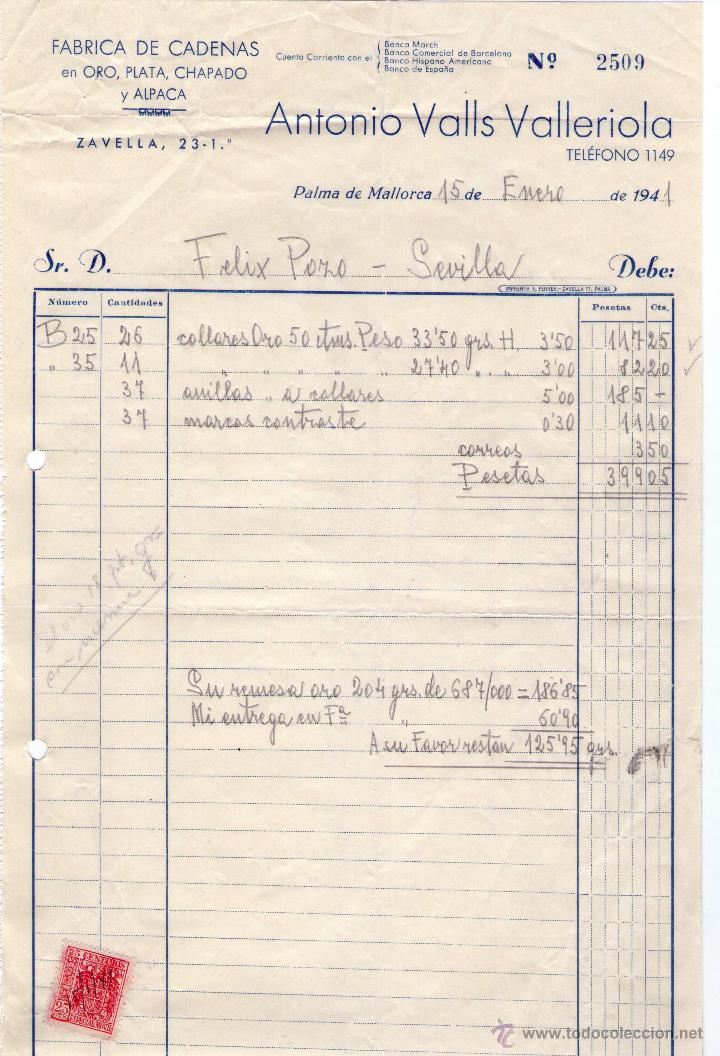 FABRICA DE CADENAS
en ORO, PLATA, CHAPADO
y ALPACA
ZAVELLA, 23-1.º
Cuenta Corriente con el
Banca March
Banco Comercial de Barcelona
Banco Hispano Americano
Banco de España
Nº 2509
Antonio Valls Valleriola
TELÉFONO 1149
Palma de Mallorca 15 de Enero de 1941
Sr. D. Felix Pozo - Sevilla Debe:
IMPRENTA F. FERRER.-ZAVELLA 17. PALMA
Número Cantidades Pesetas Cts.
B 25 26 collares Oro 50 ctms. Peso 33'50 grs. H 3'50 117 25
" 35 11 " " " " " 27'40 " . " 3'00 82 20
37 anillas " a collares 5'00 185 -
37 marcas contraste 0'30 11 10
correos 3 50
Pesetas 399 05
Su remesa oro 204 grs. de 687/000 = 186'85
Mi entrega en Fª " 60'90
A su Favor restan 125'95 grs.
25 CENTIMS
www.todocoleccion.net